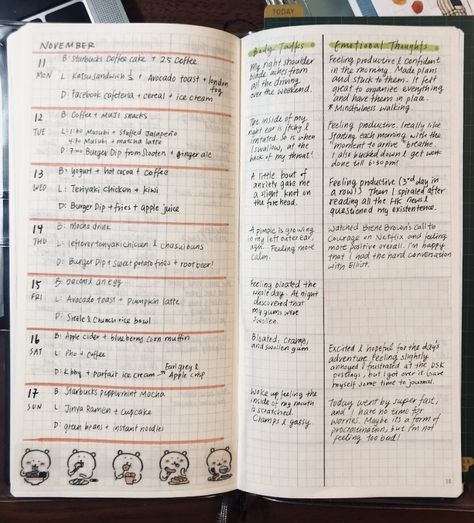 TODAY
NOVEMBER
11
MON
B: Starbucks Coffee cake + 25 Coffee
L: Katsu sandwich ½ + Avocado toast + london fog
D: Facebook cafeteria + cereal + ice cream
12
TUE
B: Coffee + MUJI snacks
L: Musubi + stuffed Jalapeño
musubi + matcha latte
D: Two Burger Dip from Skooten + ginger ale
13
WED
B: Yogurt + hot cocoa + Coffee
L: Teriyaki chicken + kiwi
D: Burger Dip + fries + apple juice
14
THU
B: mocha drink
L: leftover tonkatsu chicken & chasiu buns
D: Burger Dip + sweet potato fries + root beer!
15
FRI
B: bacon & an egg
L: Avocado toast + Pumpkin latte
D: rice bowl
16
SAT
B: Apple cider + blueberry corn muffin
L: Pho + Coffee
D: K bbq + parfait ice cream → Earl grey & Apple crisp
17
SUN
B: Starbucks peppermint Mocha
L: Jinya Ramen + cupcake
D: green beans + instant noodles
Body Talks
My right shoulder
blade aches from
all the driving
over the weekend.
The inside of my
right ear is itchy &
irritated. So is when
I swallow, at the
back of my throat!
A little bout of
anxiety gave me
a slight knot on
the forehead.
A pimple is growing
in my left outer ear,
ugh. Feeling more
calm.
Feeling bloated the
whole day. At night
discovered that
my gums were
swollen.
Bloated, cramps,
and swollen gum
Woke up feeling the
inside of my mouth
is scratched.
Cramps & gassy.
Emotional Thoughts
Feeling productive & confident
in the morning. Made plans
and stuck to them. It felt
great to organize everything
and have them in place.
* Mindfulness walking.
Feeling productive. I really like
starting each morning with the
"moment to arrive" breathe.
I also buckled down & got work
done till 6:30pm!
Feeling productive (3rd day in
a row!) Then I spiraled after
reading all the HK news &
questioned my existence.
Watched Brene Brown's Call to
Courage on Netflix and feeling
more positive overall. I'm happy
that I had the hard conversation
with Elliot.
Excited & hopeful for the day's
adventure. Feeling slightly
annoyed & frustrated at the DSK
postings, but I got over it. Gave
myself some time to journal.
Today went by super fast,
and I have no time for
worries. Maybe it's a form of
procrastination, but I'm not
feeling too bad!